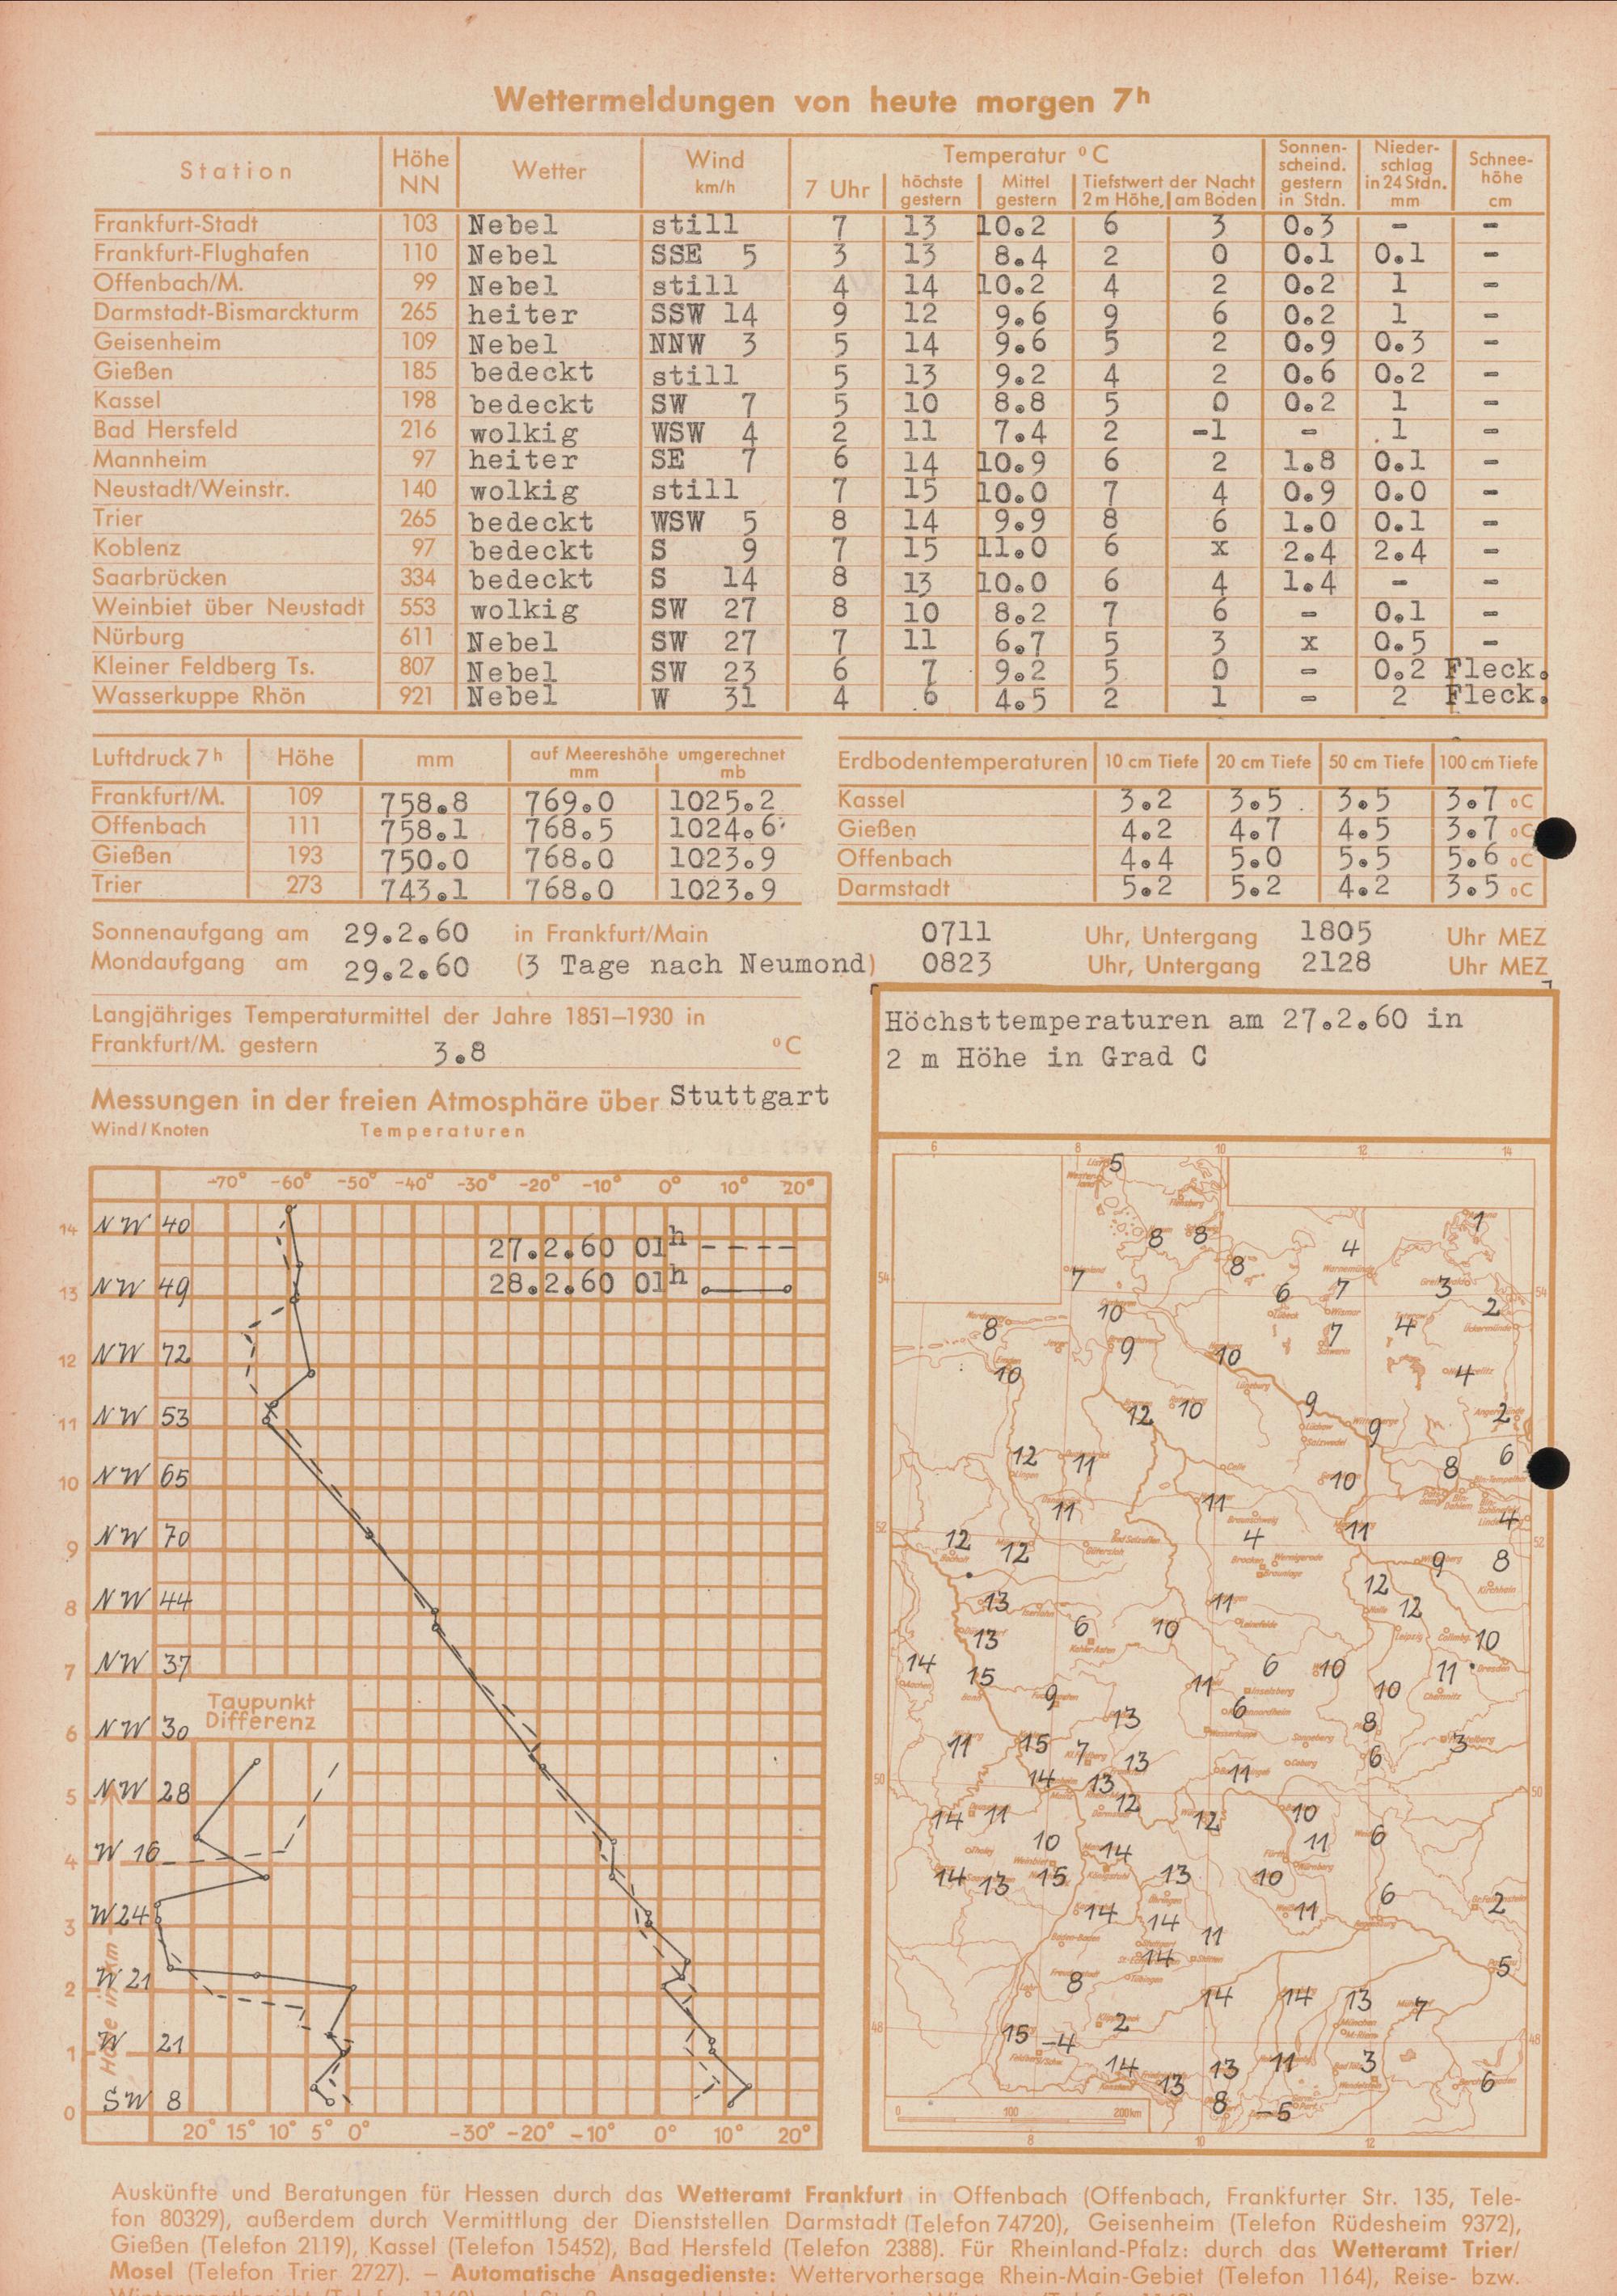 Wettermeldungen von heute morgen 7h
Station Höhe NN Wetter Wind km/h Temperatur °C Sonnenscheind. gestern in Stdn. Niederschlag in 24 Stdn. mm Schneehöhe cm
7 Uhr höchste gestern Mittel gestern Tiefstwert der Nacht 2 m Höhe, am Boden
Frankfurt-Stadt 103 Nebel still 7 13 10.2 6 3 0.3 - -
Frankfurt-Flughafen 110 Nebel SSE 5 3 13 8.4 2 0 0.1 0.1 -
Offenbach/M. 99 Nebel still 4 14 10.2 4 2 0.2 1 -
Darmstadt-Bismarckturm 265 heiter SSW 14 9 12 9.6 9 6 0.2 1 -
Geisenheim 109 Nebel NNW 3 5 14 9.6 5 2 0.9 0.3 -
Gießen 185 bedeckt still 5 13 9.2 4 2 0.6 0.2 -
Kassel 198 bedeckt SW 7 5 10 8.8 5 0 0.2 1 -
Bad Hersfeld 216 wolkig WSW 4 2 11 7.4 2 -1 - 1 -
Mannheim 97 heiter SE 7 6 14 10.9 6 2 1.8 0.1 -
Neustadt/Weinstr. 140 wolkig still 7 15 10.0 7 4 0.9 0.0 -
Trier 265 bedeckt WSW 5 8 14 9.9 8 6 1.0 0.1 -
Koblenz 97 bedeckt S 9 7 15 11.0 6 x 2.4 2.4 -
Saarbrücken 334 bedeckt S 14 8 13 10.0 6 4 1.4 - -
Weinbiet über Neustadt 553 wolkig SW 27 8 10 8.2 7 6 - 0.1 -
Nürburg 611 Nebel SW 27 7 11 6.7 5 3 x 0.5 -
Kleiner Feldberg Ts. 807 Nebel SW 23 6 7 9.2 5 0 - 0.2 Fleck.
Wasserkuppe Rhön 921 Nebel W 31 4 6 4.5 2 1 - 2 Fleck.
Luftdruck 7h Höhe mm auf Meereshöhe umgerechnet mm mb
Frankfurt/M. 109 758.8 769.0 1025.2
Offenbach 111 758.1 768.5 1024.6
Gießen 193 750.0 768.0 1023.9
Trier 273 743.1 768.0 1023.9
Erdbodentemperaturen 10 cm Tiefe 20 cm Tiefe 50 cm Tiefe 100 cm Tiefe
Kassel 3.2 3.5 3.5 3.7 °C
Gießen 4.2 4.7 4.5 3.7 °C
Offenbach 4.4 5.0 5.5 5.6 °C
Darmstadt 5.2 5.2 4.2 3.5 °C
Sonnenaufgang am 29.2.60 in Frankfurt/Main 0711 Uhr, Untergang 1805 Uhr MEZ
Mondaufgang am 29.2.60 (3 Tage nach Neumond) 0823 Uhr, Untergang 2128 Uhr MEZ
Langjähriges Temperaturmittel der Jahre 1851–1930 in
Frankfurt/M. gestern 3.8 °C
Messungen in der freien Atmosphäre über Stuttgart
Wind/Knoten Temperaturen
-70° -60° -50° -40° -30° -20° -10° 0° 10° 20°
27.2.60 01h
28.2.60 01h
14 NW 40
13 NW 49
12 NW 72
11 NW 53
10 NW 65
9 NW 70
8 NW 44
7 NW 37
Taupunkt
Differenz
6 NW 30
5 NW 28
4 W 16
3 W 24
2 W 21
1 W 21
0 SW 8
Höhe in km
20° 15° 10° 5° 0° -30° -20° -10° 0° 10° 20°
Höchsttemperaturen am 27.2.60 in
2 m Höhe in Grad C
6 8 10 12 14
5
8 8 1
4
7 8
54 6 7 3 54
10 2
8 7 4
9 10
10 4
12 10 9 2
9
12 11 6
8
10
11 11
52 4 11 4 52
12 12
9 8
12
13 11 12
6 10
13 10
14 6 10 11
15 11
9 10
13 6
11 15 8 3
7 13 6
50 14 13 11 50
14 11 12 12 10
10 14 11 6
14 13 15 13 10
6 2
14 14 11
11
14 5
8 14 14 13 7
2
48 15 -4 48
14 13 11 3
13 6
8 -5
0 100 200km
8 10 12
Auskünfte und Beratungen für Hessen durch das Wetteramt Frankfurt in Offenbach (Offenbach, Frankfurter Str. 135, Tele-
fon 80329), außerdem durch Vermittlung der Dienststellen Darmstadt (Telefon 74720), Geisenheim (Telefon Rüdesheim 9372),
Gießen (Telefon 2119), Kassel (Telefon 15452), Bad Hersfeld (Telefon 2388). Für Rheinland-Pfalz: durch das Wetteramt Trier/
Mosel (Telefon Trier 2727). – Automatische Ansagedienste: Wettervorhersage Rhein-Main-Gebiet (Telefon 1164), Reise- bzw.